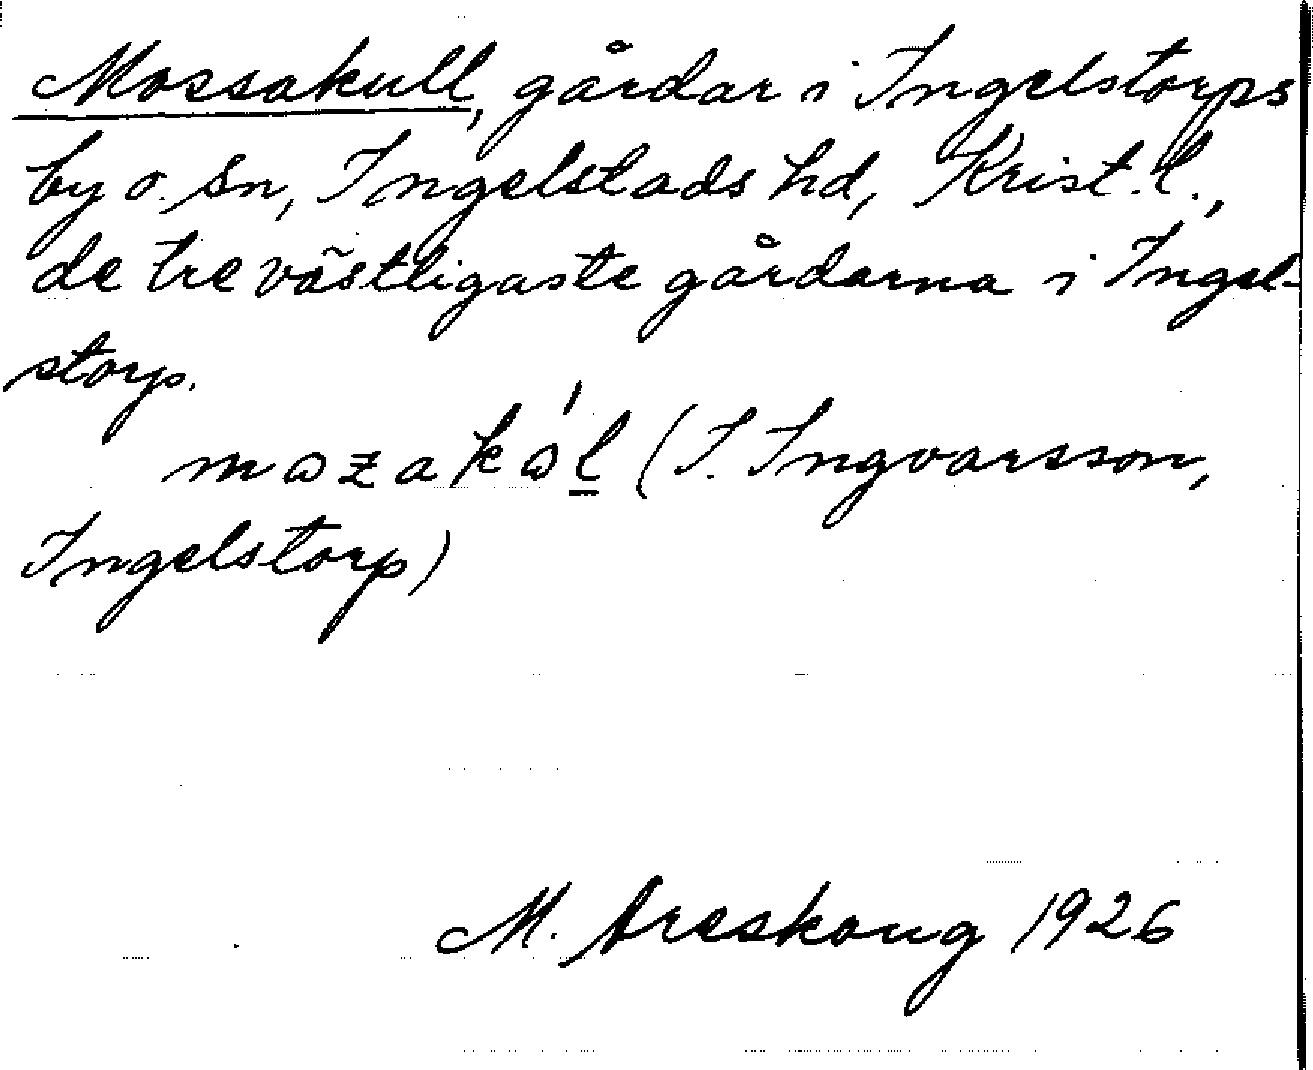 Mossakull, gårdar i Ingelstorps
by o. sn, Ingelstads hd, Krist. l.,
de tre västligaste gårdarna i Ingel-
storp.
mɷzakɷ́l (I. Ingvarsson,
Ingelstorp)
M. Areskoug 1926